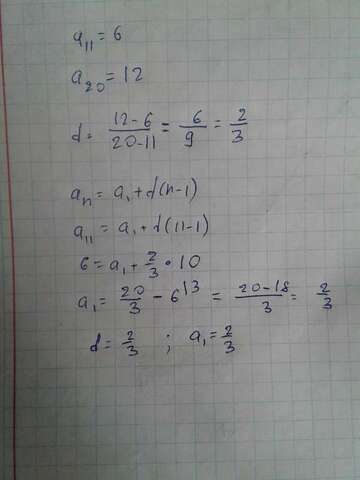 a₁₁ = 6
a₂₀ = 12
d = (12-6)/(20-11) = 6/9 = 2/3
aₙ = a₁ + d(n-1)
a₁₁ = a₁ + d(11-1)
6 = a₁ + 2/3 · 10
a₁ = 20/3 - 6^{13} = (20-18)/3 = 2/3
d = 2/3 ; a₁ = 2/3